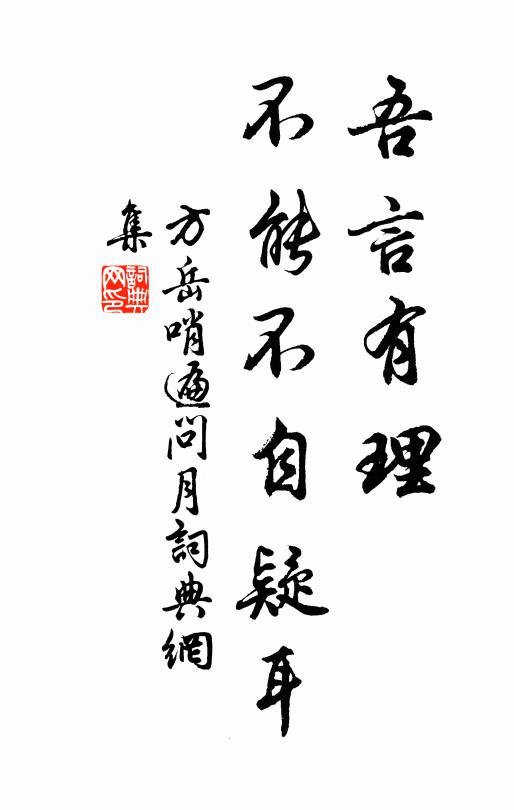 吾言有理
不能不自疑耳
方岳哨遍問月詞典網
集
詞典網印